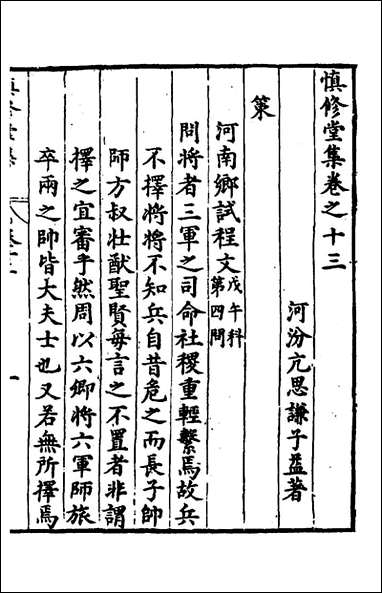 慎修堂集卷之十三
河汾亢思謙子益著
策
河南鄉試程文戊午科第四問
問將者三軍之司命社稷重輕繫焉故兵
不擇將將不知兵自昔危之而長子帥
師方叔壯猷聖賢每言之不置者非謂
擇之宜審乎然周以六卿將六軍師旅
卒兩之帥皆大夫士也又若無所擇焉